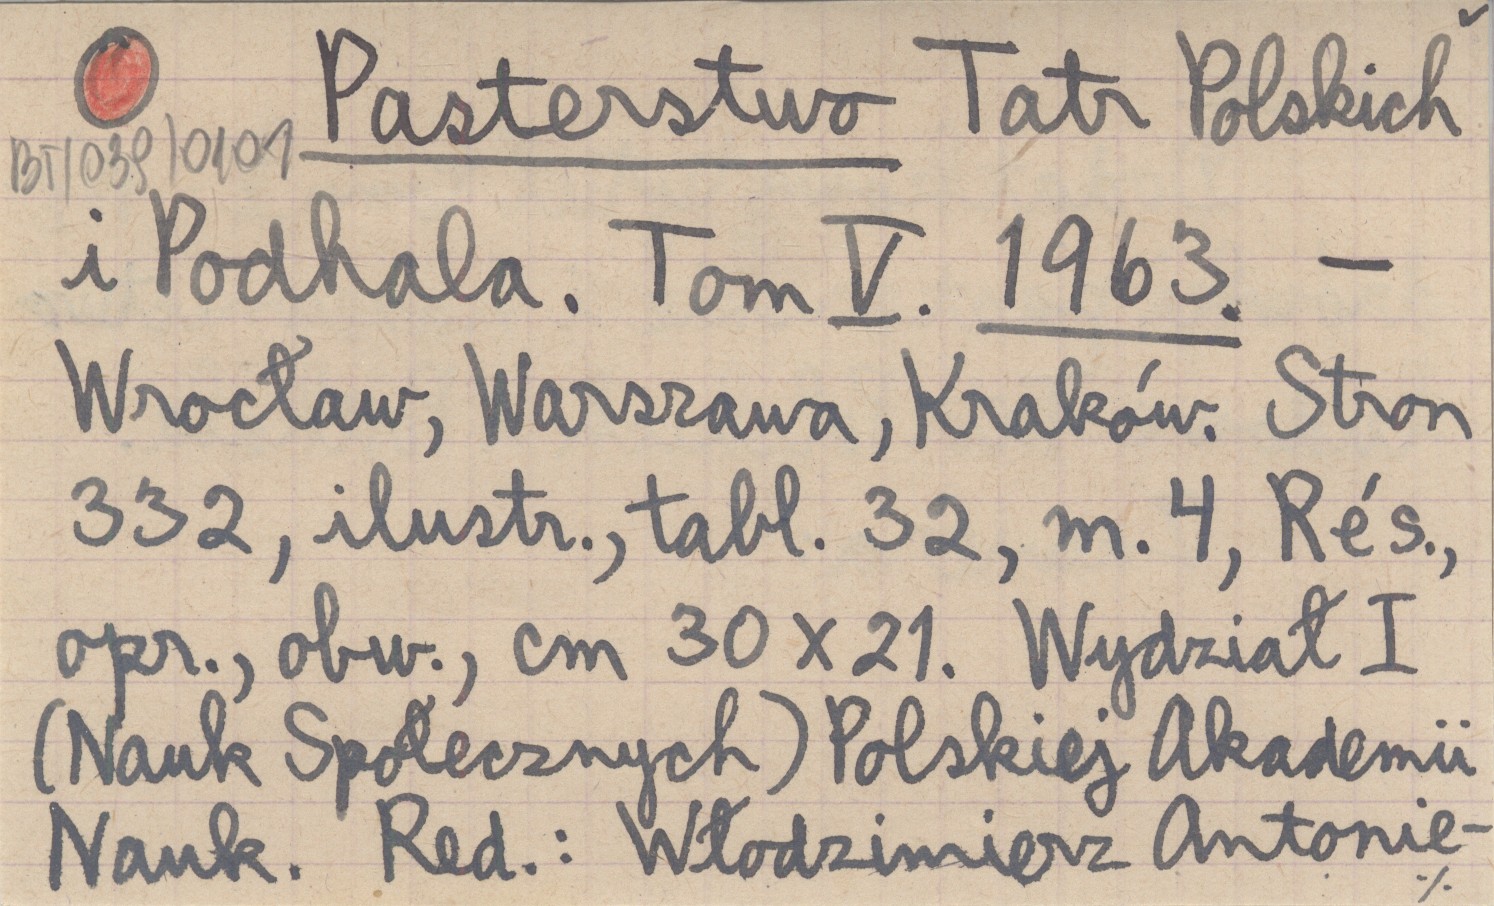 Pasterstwo Tatr Polskich
BT/039/0101
i Podhala. Tom V. 1963. —
Wrocław, Warszawa, Kraków. Stron
332, ilustr., tabl. 32, m. 4, Rés.,
opr., obw., cm 30 x 21. Wydział I
(Nauk Społecznych) Polskiej Akademii
Nauk. Red.: Włodzimierz Antonie-
./.